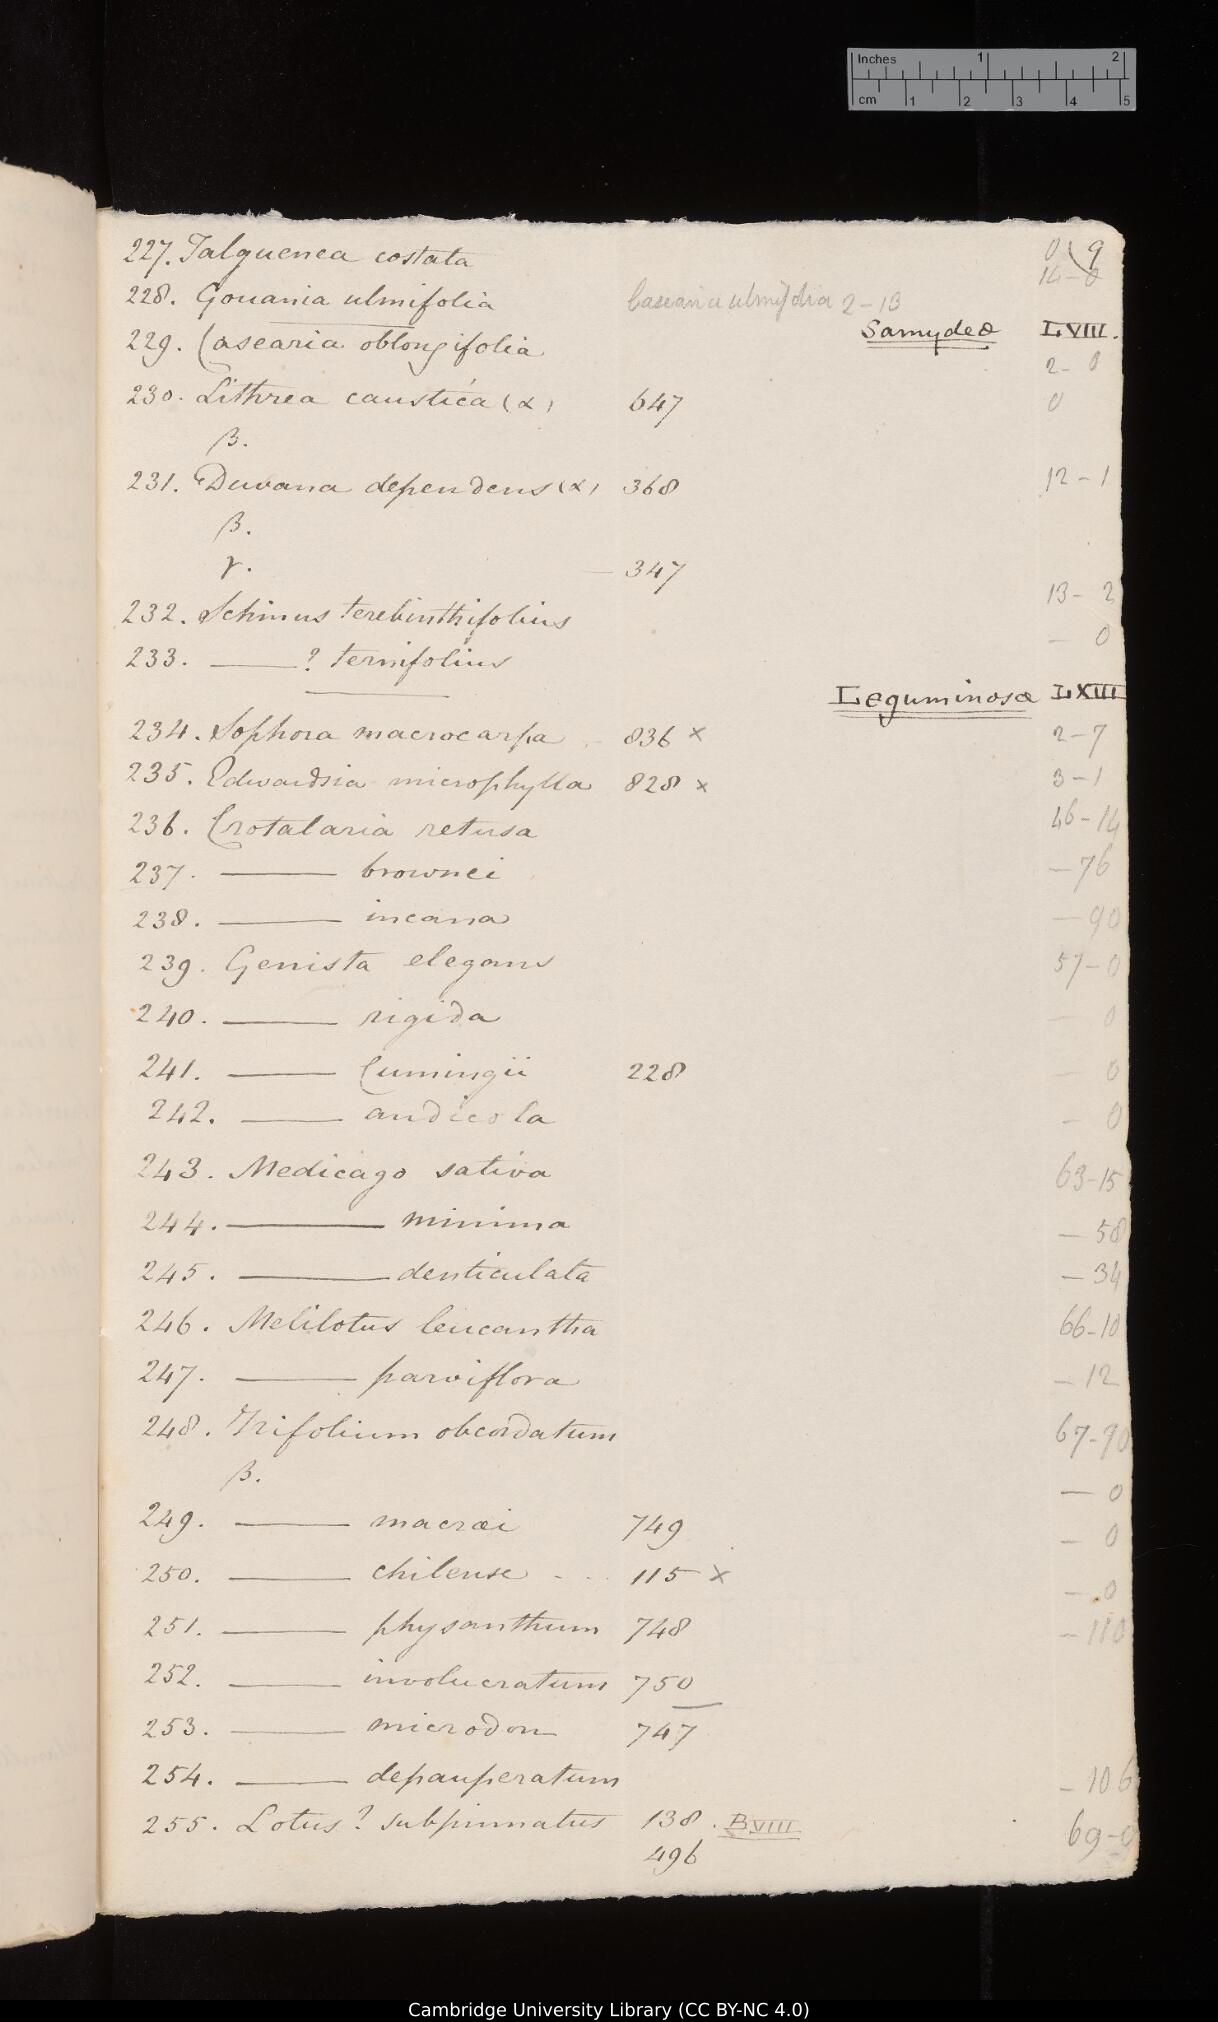 Inches 1 2
cm 1 2 3 4 5
227. Talguenea costata 0 9
228. Gouania ulmifolia Casearia ulmifolia 2-13 14-0
Samydeæ LVIII.
229. Casearia oblongifolia 2-0
230. Lithrea caustica (α) 647 0
β.
231. Duvana dependens (α) 368 12-1
β.
γ. — 347
232. Schinus terebinthifolius 13-2
233. —— ? ternifolius — 0
Leguminosæ LXIII
234. Sophora macrocarpa 836 × 2-7
235. Edwardsia microphylla 828 × 3-1
236. Crotalaria retusa 46-14
237. —— brownei — 76
238. —— incana — 90
239. Genista elegans 57-0
240. —— rigida — 0
241. —— Cumingii 228 — 0
242. —— andicola — 0
243. Medicago sativa 63-15
244. —— minima — 58
245. —— denticulata — 34
246. Melilotus leucantha 66-10
247. —— parviflora — 12
248. Trifolium obcordatum 67-90
β. — 0
249. —— macræi 749 — 0
250. —— chilense 115 × — 0
251. —— physanthum 748 — 110
252. —— involucratum 750
253. —— microdon 747
254. —— depauperatum — 106
255. Lotus? subpinnatus 138. BVIII 69-0
496
Cambridge University Library (CC BY-NC 4.0)